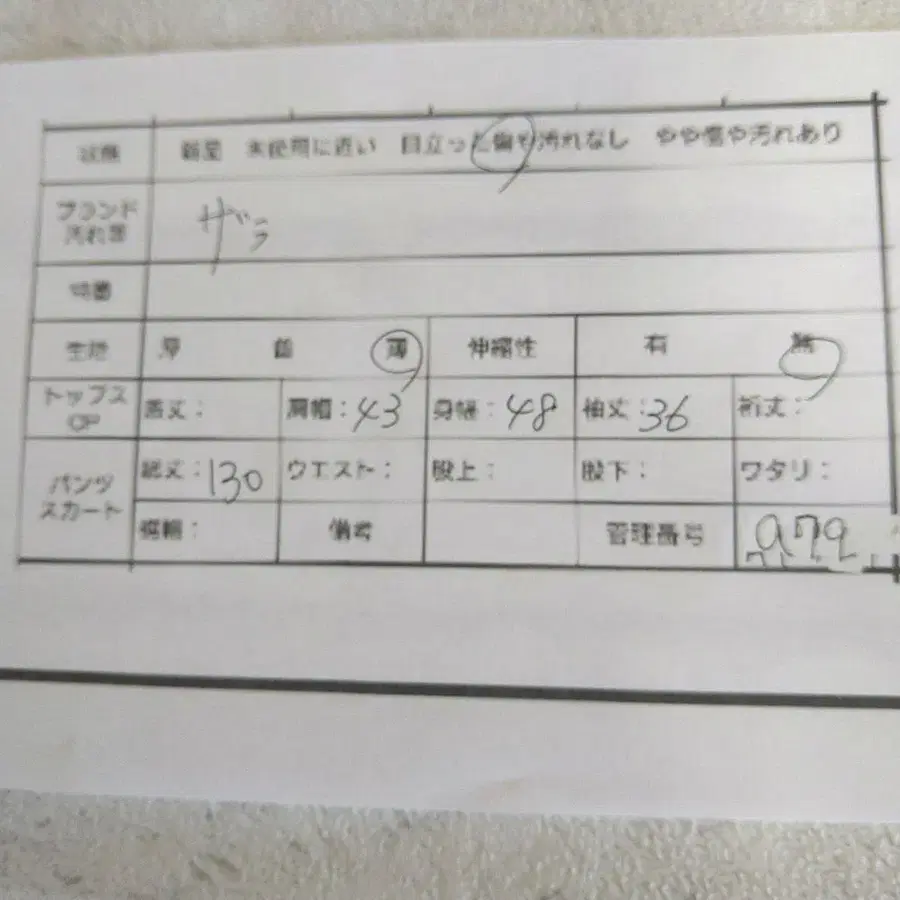 状態 新品 未使用に近い 目立った傷や汚れなし やや傷や汚れあり
ブランド
汚れ等
ザラ
特徴
生地 厚 普 薄 伸縮性 有 無
トップス
OP
着丈: 肩幅:43 身幅:48 袖丈:36 裄丈:
パンツ
スカート
総丈:130 ウエスト: 股上: 股下: ワタリ:
裾幅: 備考 管理番号